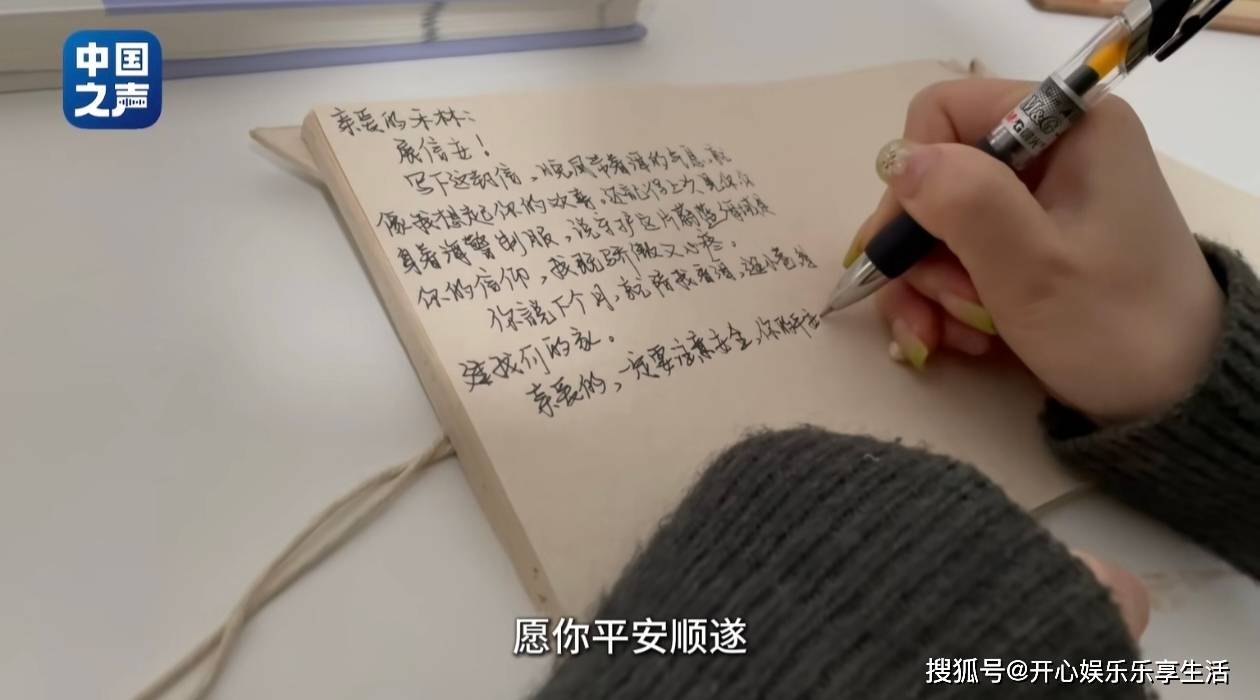 中国
之声
亲爱的禾林:
展信安!
写下这封信,晚风带着海的气息,就
像我想起你的欢喜。还记得上次见你你
身着海警制服,说守护这片蔚蓝海域是
你的信仰,我既骄傲又心疼。
你说下个月,就陪我看海,逛小巷
建我们的家。
亲爱的,一定要注意安全,你的平安
M&G
愿你平安顺遂
搜狐号@开心娱乐乐享生活